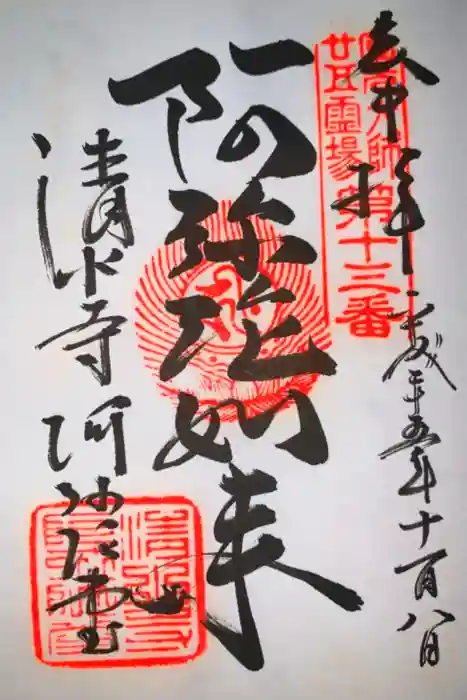 奉拝
平成二十五年十一月八日
圓光大師
廿五霊場第十三番
阿弥陀如来
清水寺
阿弥陀堂